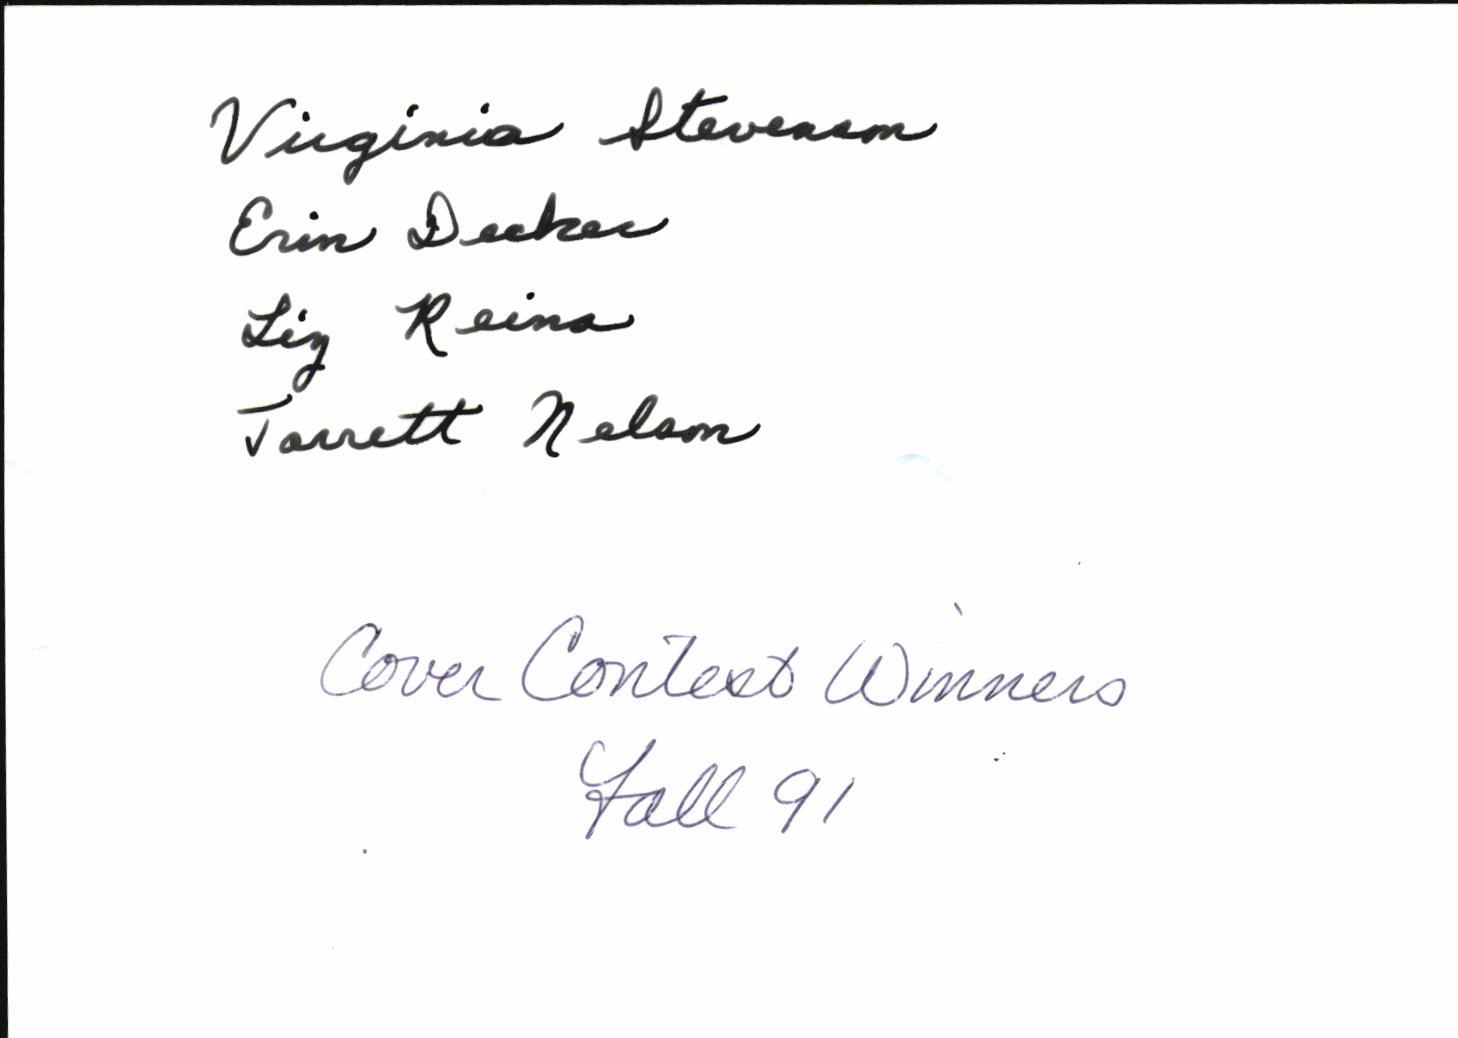 Virginia Stevenson
Erin Decker
Liz Reina
Jarrett Nelson
Cover Contest Winners
Fall 91